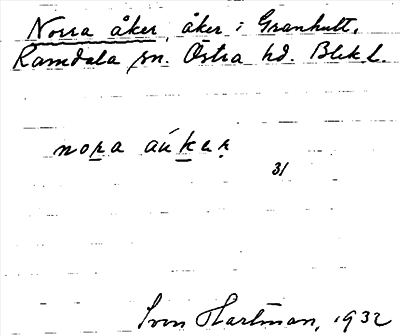 Norra åker, åker i Granhult,
Ramdala sn. Östra hd. Blek.l.
nora áukar
31
Sven Hartman, 1932